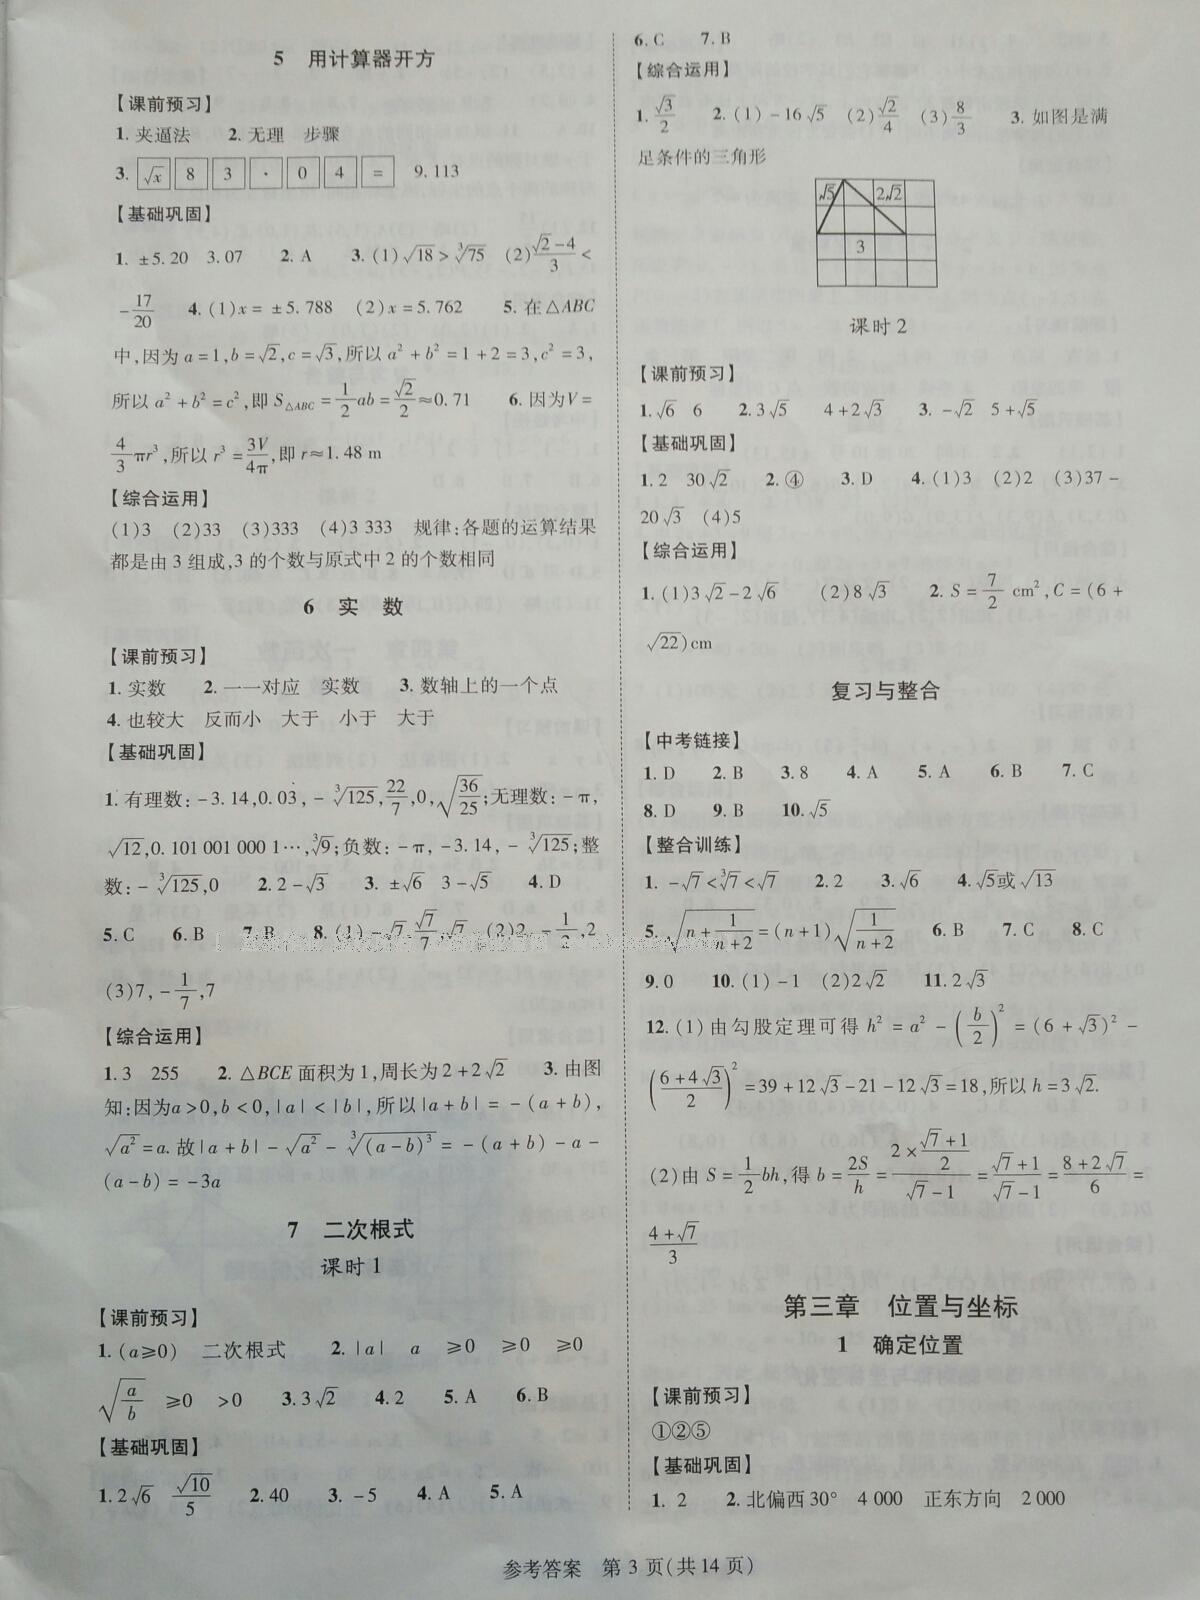 5 用计算器开方
【课前预习】
1. 夹逼法 2. 无理 步骤
3. √x 8 3 · 0 4 = 9.113
【基础巩固】
1. ±5.20 3.07 2. A 3. (1) √18 > ∛75 (2) (√2-4)/3 <
-17/20 4. (1) x = ±5.788 (2) x = 5.762 5. 在△ABC
中,因为 a=1,b=√2,c=√3,所以 a²+b²=1+2=3,c²=3,
所以 a²+b²=c²,即 S△ABC = 1/2 ab = √2/2 ≈0.71 6. 因为V=
4/3 πr³,所以 r³ = 3V/4π,即 r≈1.48 m
【综合运用】
(1)3 (2)33 (3)333 (4)3 333 规律:各题的运算结果
都是由 3 组成,3 的个数与原式中 2 的个数相同
6 实 数
【课前预习】
1. 实数 2. 一一对应 实数 3. 数轴上的一个点
4. 也较大 反而小 大于 小于 大于
【基础巩固】
1. 有理数: -3.14,0.03, -∛125, 22/7, 0, √(36/25);无理数: -π,
√12,0.101 001 000 1…,∛9;负数: -π, -3.14, -∛125;整
数: -∛125,0 2. 2-√3 3. ±√6 3-√5 4. D
5. C 6. B 7. B 8. (1) -√7 √7/7 √7 (2)2, -1/2, 2
(3)7, -1/7, 7
【综合运用】
1. 3 255 2. △BCE 面积为 1,周长为 2+2√2 3. 由图
知:因为a>0,b<0,|a|<|b|,所以|a+b| = -(a+b),
√a²=a. 故|a+b| - √a² - ∛(a-b)³ = -(a+b)-a-
(a-b) = -3a
7 二次根式
课时 1
【课前预习】
1. (a≥0) 二次根式 2. |a| a ≥0 ≥0 ≥0
√(a/b) ≥0 >0 3. 3√2 4. 2 5. A 6. B
【基础巩固】
1. 2√6 √10/5 2. 40 3. -5 4. A 5. A
6. C 7. B
【综合运用】
1. √3/2 2. (1) -16√5 (2) √2/4 (3) 8/3 3. 如图是满
足条件的三角形
√5 2√2
3
课时 2
【课前预习】
1. √6 6 2. 3√5 4+2√3 3. -√2 5+√5
【基础巩固】
1. 2 30√2 2. ④ 3. D 4. (1)3 (2)2 (3)37-
20√3 (4)5
【综合运用】
1. (1)3√2-2√6 (2)8√3 2. S = 7/2 cm²,C = (6+
√22)cm
复习与整合
【中考链接】
1. D 2. B 3. 8 4. A 5. A 6. B 7. C
8. D 9. B 10. √5
【整合训练】
1. -√7<∛7<√7 2. 2 3. √6 4. √5或√13
5. √(n+1/(n+2)) = (n+1)√(1/(n+2)) 6. B 7. C 8. C
9. 0 10. (1) -1 (2)2√2 11. 2√3
12. (1)由勾股定理可得 h² = a² - (b/2)² = (6+√3)² -
((6+4√3)/2)² = 39+12√3-21-12√3=18,所以 h=3√2.
(2)由 S = 1/2 bh,得 b = 2S/h = (2×(√7+1)/2)/(√7-1) = (√7+1)/(√7-1) = (8+2√7)/6 =
(4+√7)/3
第三章 位置与坐标
1 确定位置
【课前预习】
①②⑤
【基础巩固】
1. 2 2. 北偏西 30° 4 000 正东方向 2 000
参考答案 第 3 页(共 14 页)